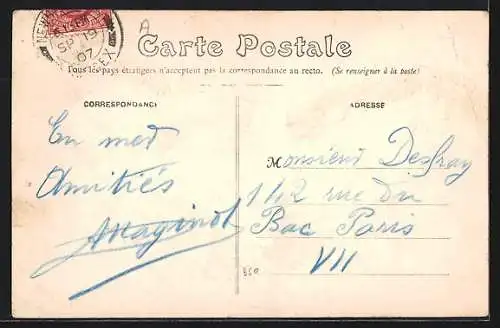 A
NEWHAVEN
SP 19
07
SUSSEX
Carte Postale
Tous les pays étrangers n'acceptent pas la correspondance au recto. (Se renseigner à la poste)
CORRESPONDANCE
ADRESSE
En med
Amitiés
AMaginot
Monsieur Desfray
142 rue du
Bac Paris
VII